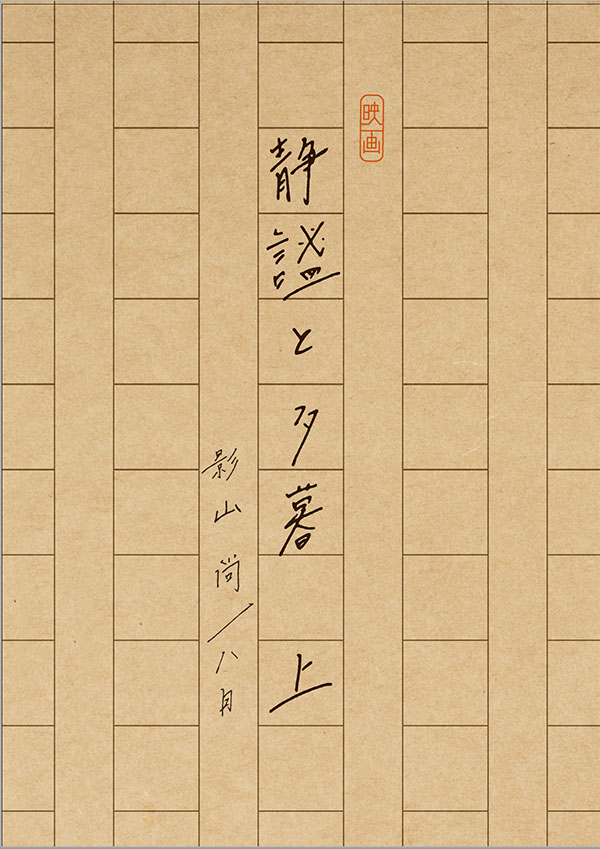 映画
静謐と夕暮 上
影山 尚/八月